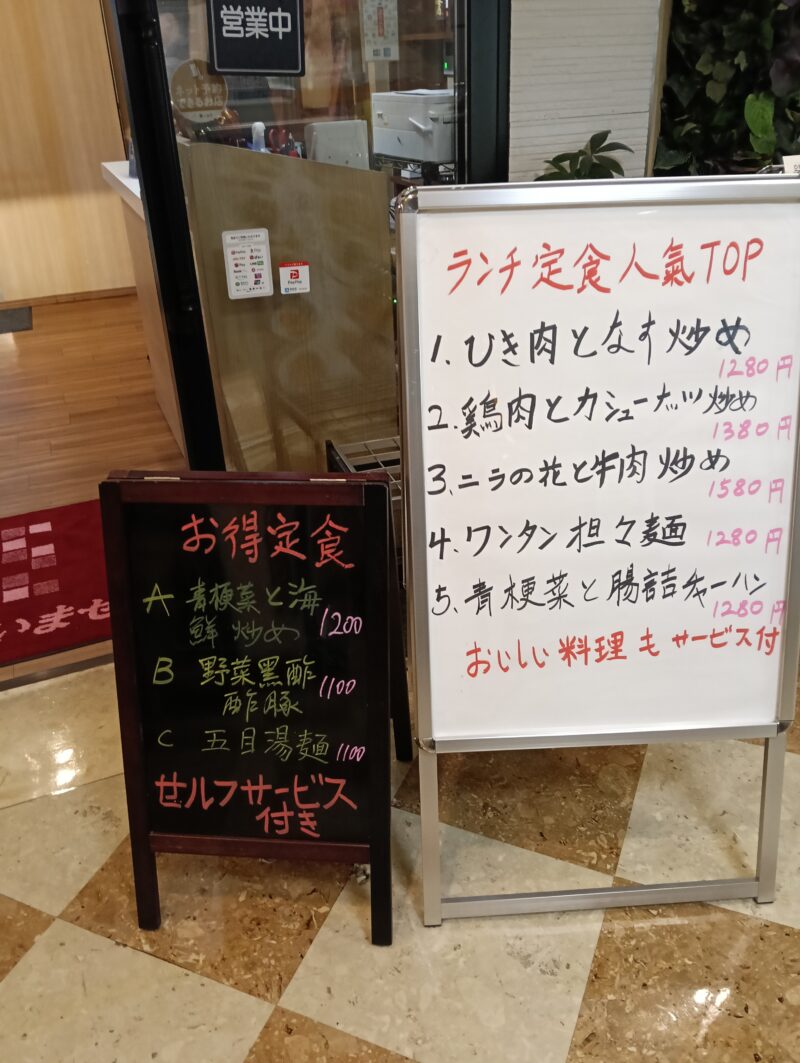 営業中
ネット予約
できるお店
PayPay
いませ
お得定食
A 青梗菜と海
鮮炒め 1200
B 野菜黒酢
酢豚 1100
C 五目湯麺 1100
セルフサービス
付き
ランチ定食人氣TOP
1. ひき肉となす炒め
1280円
2. 鶏肉とカシューナッツ炒め
1380円
3. ニラの花と牛肉炒め
1580円
4. ワンタン担々麺 1280円
5. 青梗菜と腸詰チャーハン
1280円
おいしい料理もサービス付